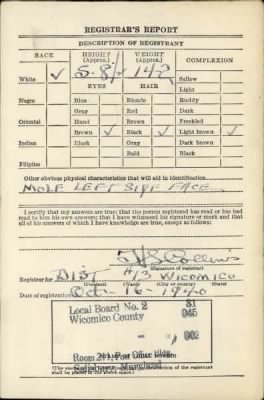 REGISTRAR'S REPORT
DESCRIPTION OF REGISTRANT
RACE HEIGHT (Approx.) WEIGHT (Approx.) COMPLEXION
White ✓ 5-8½ 142 Sallow
EYES HAIR Light
Negro Blue Blonde Ruddy
Gray Red Dark
Oriental Hazel Brown Freckled
Brown ✓ Black ✓ Light brown ✓
Indian Black Gray Dark brown
Bald Black
Filipino
Other obvious physical characteristics that will aid in identification
MOLE LEFT SIDE FACE
I certify that my answers are true; that the person registered has read or has had read to him his own answers; that I have witnessed his signature or mark and that all of his answers of which I have knowledge are true, except as follows:
Collins
(Signature of registrar)
Registrar for DIST #13 WICOMICO
(Precinct) (Ward) (City or county) (State)
Date of registration Oct-16-1940
Local Board No. 2 81
Wicomico County 045
002
Room 211, Post Office
Salisbury, Maryland